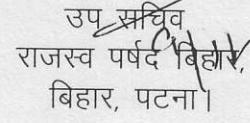 उप सचिव
राजस्व पर्षद बिहार,
बिहार, पटना।